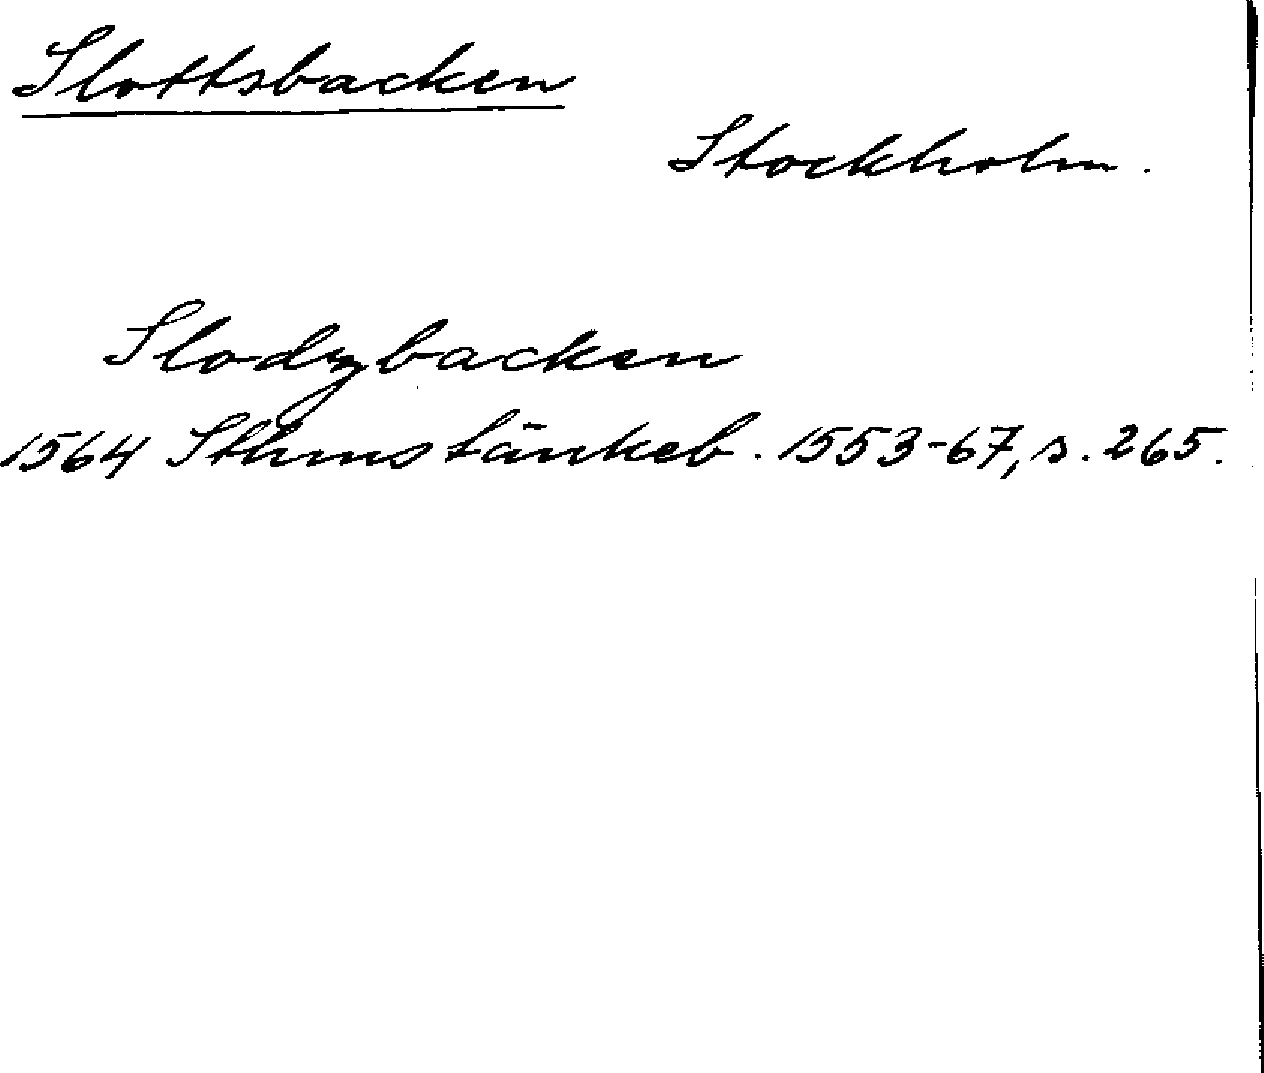 Slottsbacken
Stockholm.
Slodzbacken
1564 Sthms tänkeb. 1553-67, s. 265.